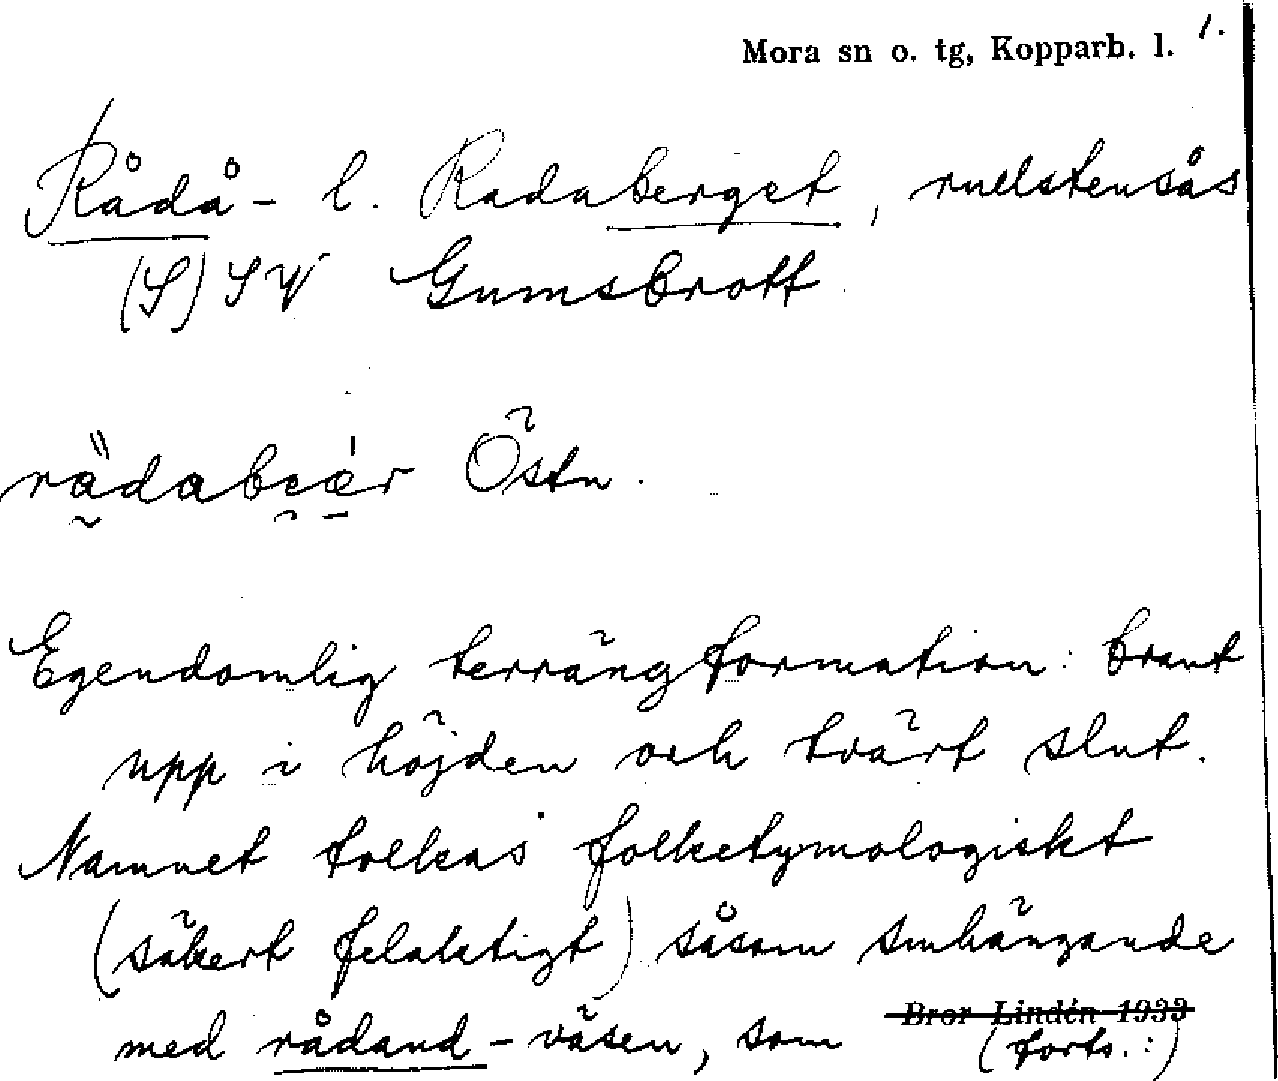 Mora sn o. tg, Kopparb. l. 1.
Rådå- l. Radaberget, rullstensås
(S) SV Gumsbrott
rädabeær Östn.
Egendomlig terrängformation: brant
upp i höjden och tvärt slut.
Namnet tolkas folketymologiskt
(säkert felaktigt) såsom smhängande
med rådand-väsen, som
Bror Lindén 1933
(forts.:)